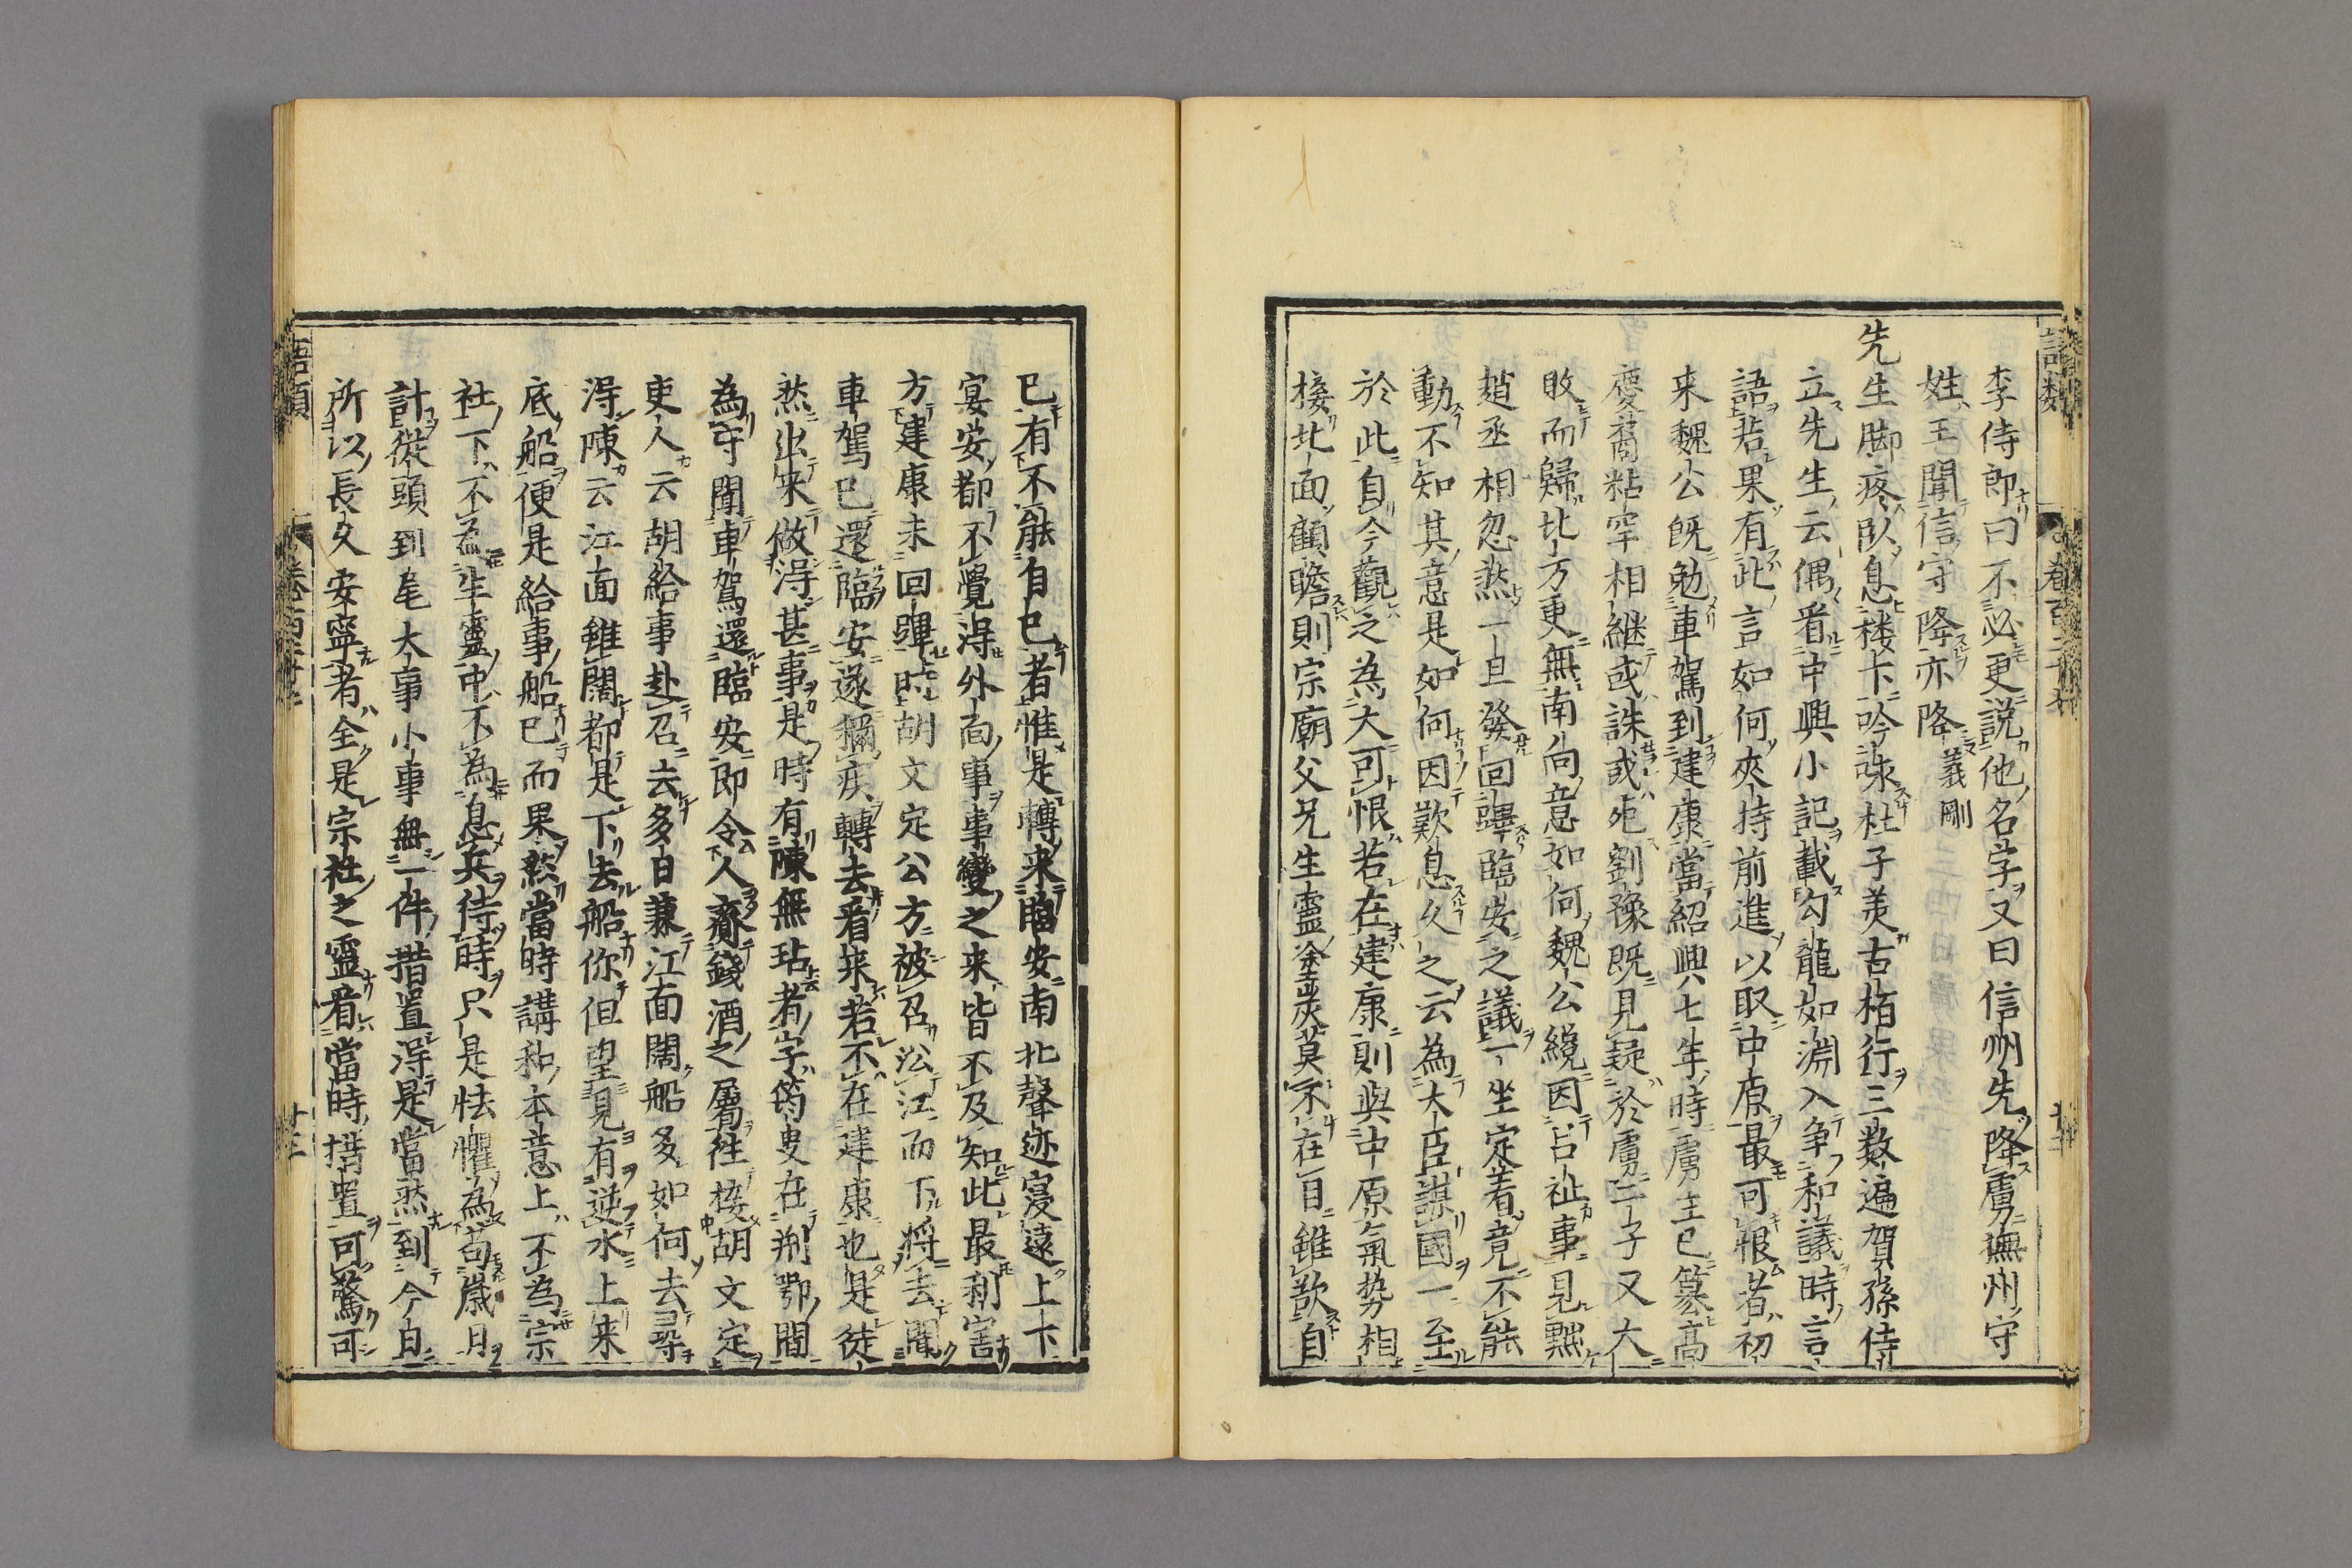 語類 卷百二十七 廿二
李侍郎曰不必更説他名字又曰信州先降虜撫州守
姓王聞信守降亦降義剛
先生脚疼臥息樓下吟誦杜子美古栢行三數遍賀孫侍
立先生云偶看中興小記載勾龍如淵入爭和議時言
語若果有此言如何夾持前進以取中原最可恨者初
来魏公既勉車駕到建康當紹興七年時虜主已篡高
慶裔粘罕相継或誅或死劉豫既見疑於虜二子又大
敗而歸北方更無南向意如何魏公纔因呂祉事見黜
趙丞相忽然一旦發回蹕臨安之議一坐定着竟不能
動不知其意是如何因歎息久之云為大臣謀國一至
於此自今觀之為大可恨若在建康則與中原氣勢相
接北面顧瞻則宗廟父兄生靈塗炭莫不在目雖欲自
已有不能自已者惟是轉来臨安南北聲迹寖遠上下
宴安都不覺得外面事事變之来皆不及知此最利害
方建康未回蹕時胡文定公方被召沿江而下將去聞
車駕已還臨安遂稱疾轉去看来若不在建康也是徒
然出来做得甚事是時有陳無玷者字筠叟在荆鄂間
為守聞車駕還臨安即令人齎錢酒之屬往接胡文定
吏人云胡給事赴召去多日兼江面闊船多如何去尋
得陳云江面雖闊都是下去船你但望見有逆水上来
底船便是給事船已而果然當時講和本意上不為宗
社下不為生靈中不為息兵待時只是怯懼為苟歲月
計從頭到尾大事小事無一件措置得是當然到今日
所以長久安寧者全是宗社之靈看當時措置可驚可
語類 卷百二十七 廿三